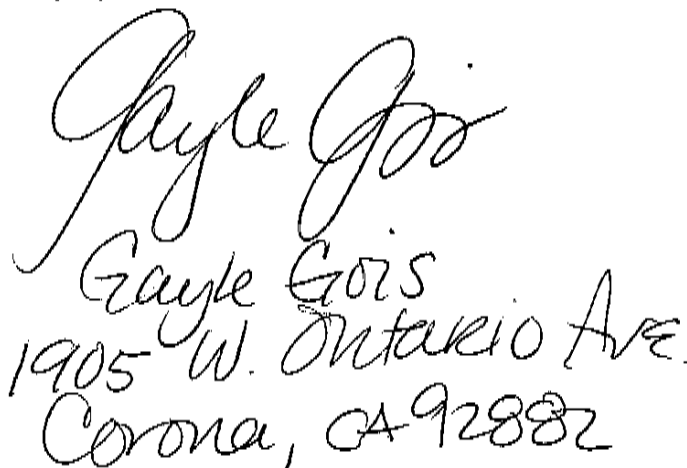 Gayle Gois
Gayle Gois
1905 W. Ontario Ave.
Corona, CA 92882